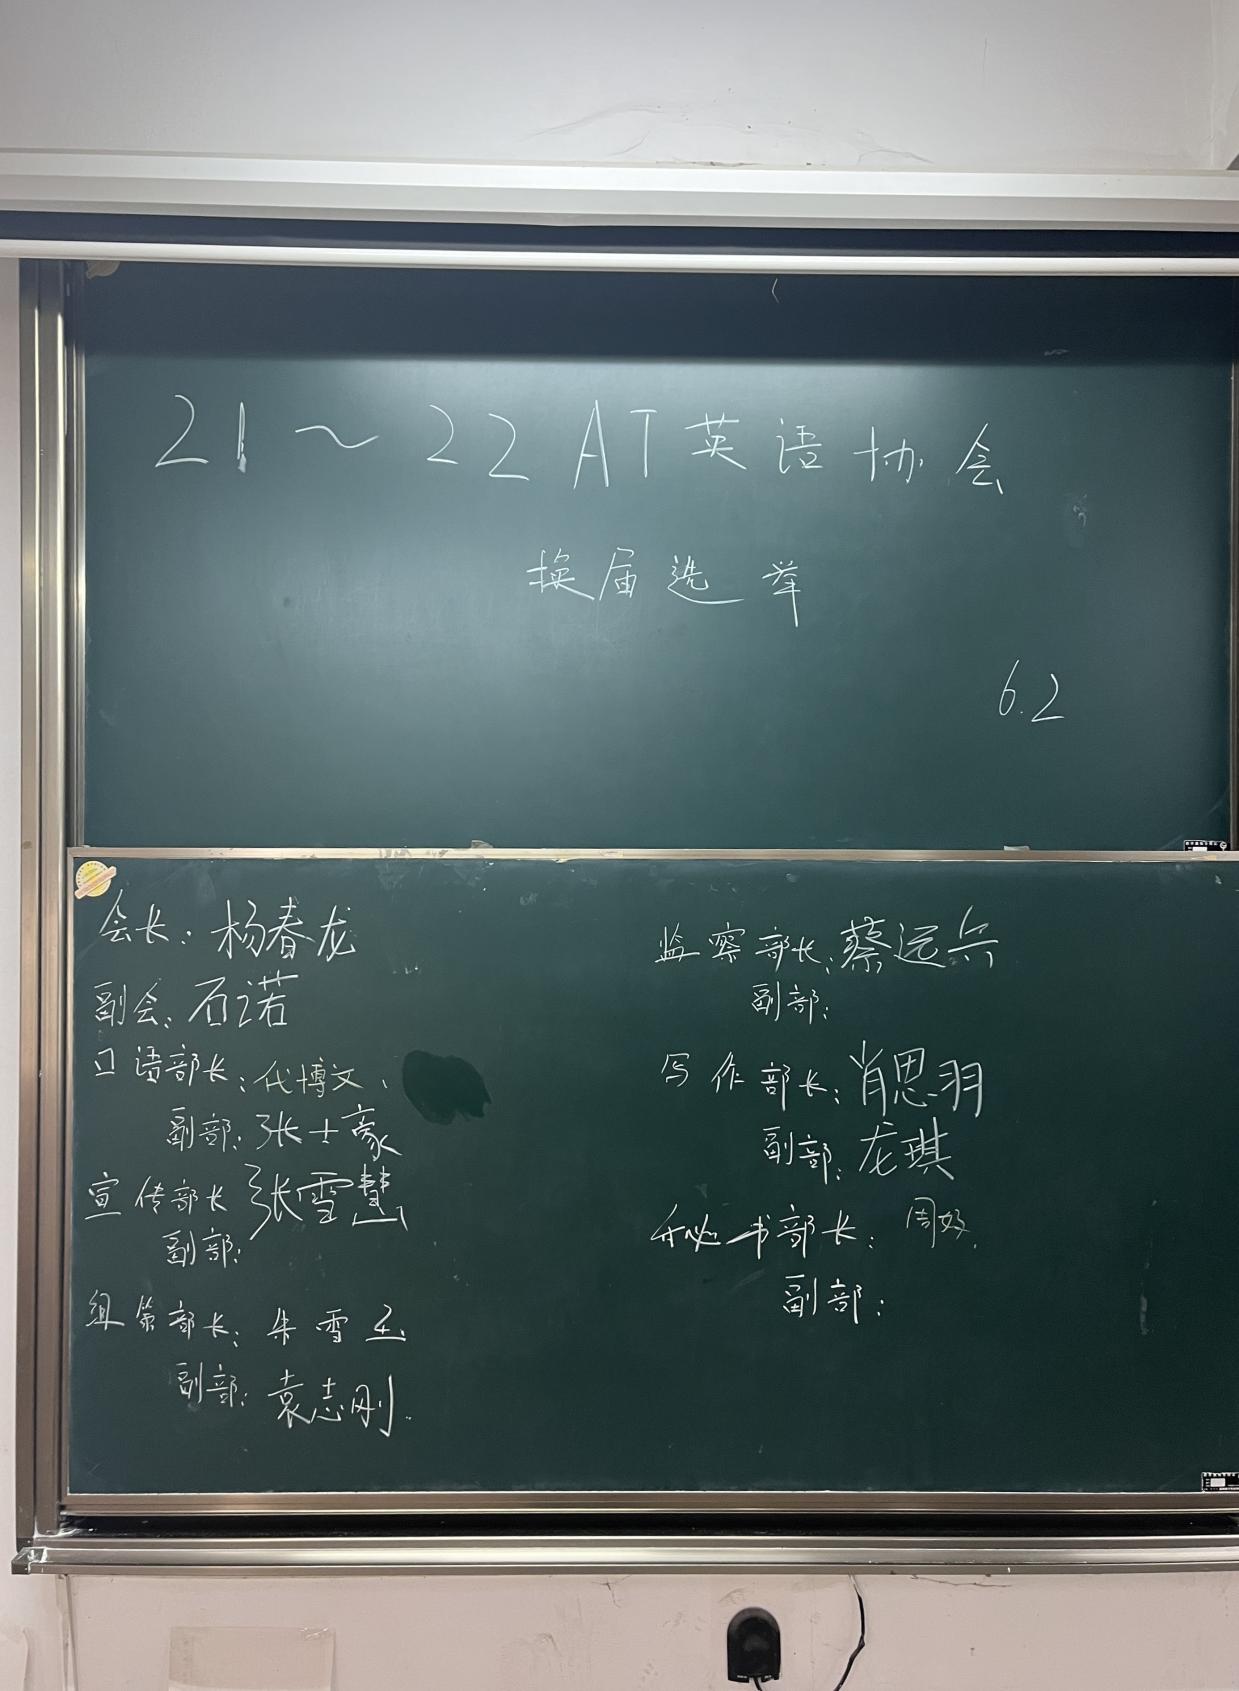 21～22AT英语协会
换届选举
6.2
会长：杨春龙
副会：石诺
口语部长：代博文、
副部：张士豪
宣传部长 张雪慧
副部：
组策部长：朱雪玉
副部：袁志刚.
监察部长：蔡远兵
副部：
写作部长：肖思羽
副部：龙琪
秘书部长：周好.
副部：